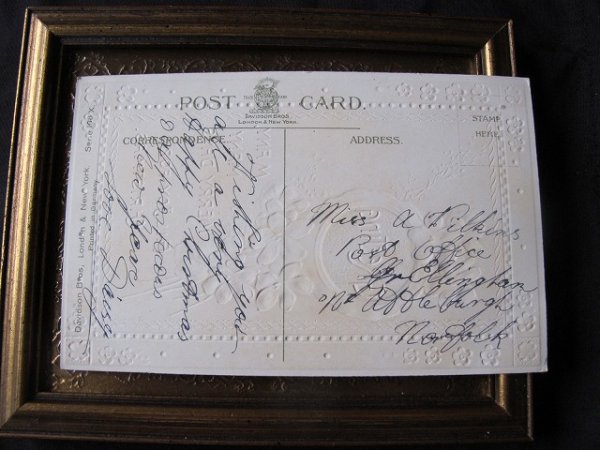 POST CARD.
DAVIDSON BROS.
LONDON & NEW YORK.
STAMP
HERE
CORRESPONDENCE
ADDRESS.
Davidson Bros, London & New York. Serie
Printed in Germany.
Wishing you
all a very
Happy Christmas
& prosperous
new year
love Daisy
Miss A Wilkins
Post Office
Gt Ellingham
Nr Attleburgh
Norfolk